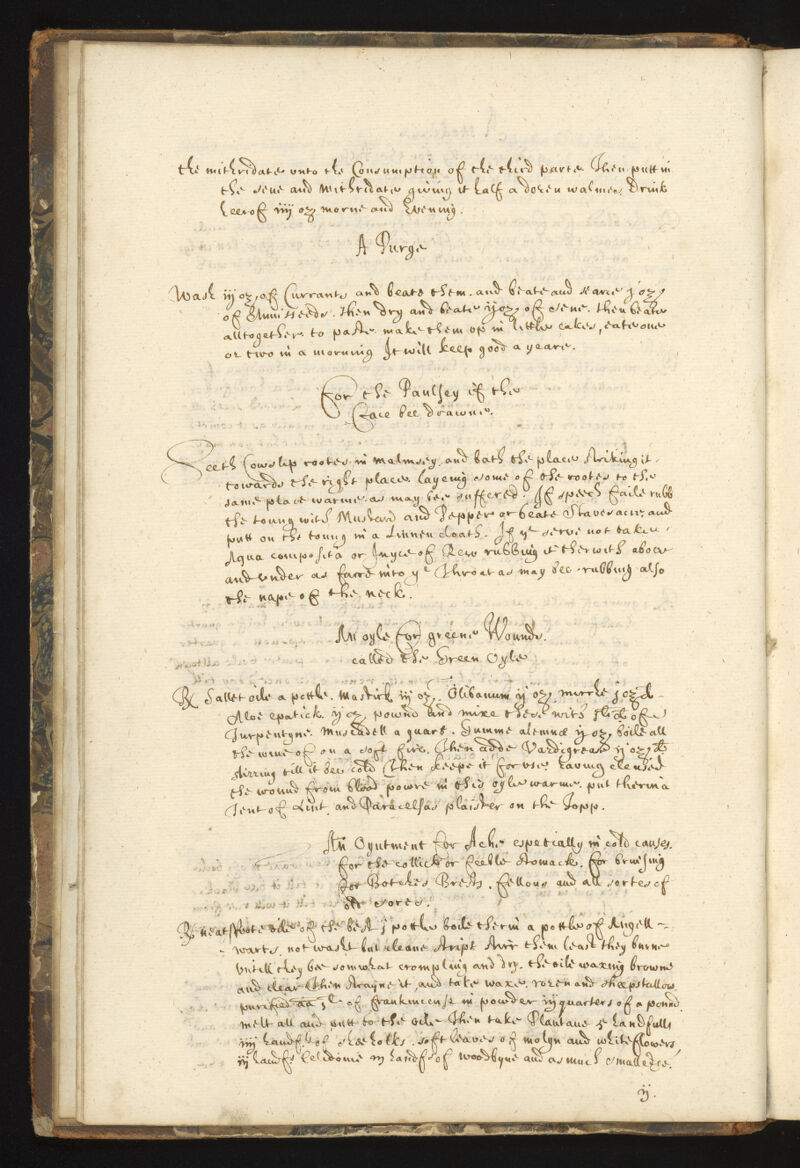 the mithridate unto the Consumption of the third parte Then putt in
the sene and Mithridate giving it half a dozen walmes. Drink
heerof iiij oz morne and Evening.
A Purge
Wash iij oz of Currants and beate them. and beate and searce j oz
of Anniseeds. then dry and beate ij oz of sene. then beate
alltogether to paste make them up in little cakes, eate one
or two in a morning It will keep good a yeare.
For the Paulsey if the
Face bee drawne.
Seeth Cowslip rootes in malmsey, and bath the place striking it
towards the right place layeing some of the rootes to the
same place warme as may bee suffered. If speech faile rubb
the toung with Mustard and Pepper or beate Stavesacre and
putt on the toung in a Linnen cloath. If ye serve not take
Aqua composita or Juyce of Rew rubbing it therwith above
and under as farre into ye Throat as may bee. rubbing also
the nape of the neck.
An oyle for greene Wounds.
called the Green Oyle
℞ Sallet oile a pottle. Mastick iij oz. Olibanum ij oz, mirrhe j oz &
Aloe epatick. ij oz pownd and mixe these with of
Turpentyne. Muscadell a quart. Gumme ij oz boile all
the wine of on a soft fire. Then adde Vardigrease ij oz
stirring till it bee cold Then keepe it for use having clensed
the wound from blood powre in this oyle warme. put therin a
Tent of Lint. and Paracelsas plaister on the Topp.
An Oyntment for Ache especially in cold causes.
For the collick or feeble stomack. For bruising
for Botches Brests, Fellons and all sortes of
sores.
℞ neatsfoote oile of the best j pottle boile therin a pottle of Angell-
warts. not washt but cleane stript stirr them least they burne
Untill they bee somwhat crompling and dry. the oile waxing browne
and clear Then strayne it, and take waxe, rozen and sheepstallow
purified of frankincense in powder iij quarters of a pound
melt all and putt to the oile Then take Plantane handfulls
iiij handfs of . soft leaves of molyn and white flowers
iij handfs Celidonie iij handfs of woodbyne and as much smalledge.
ij.